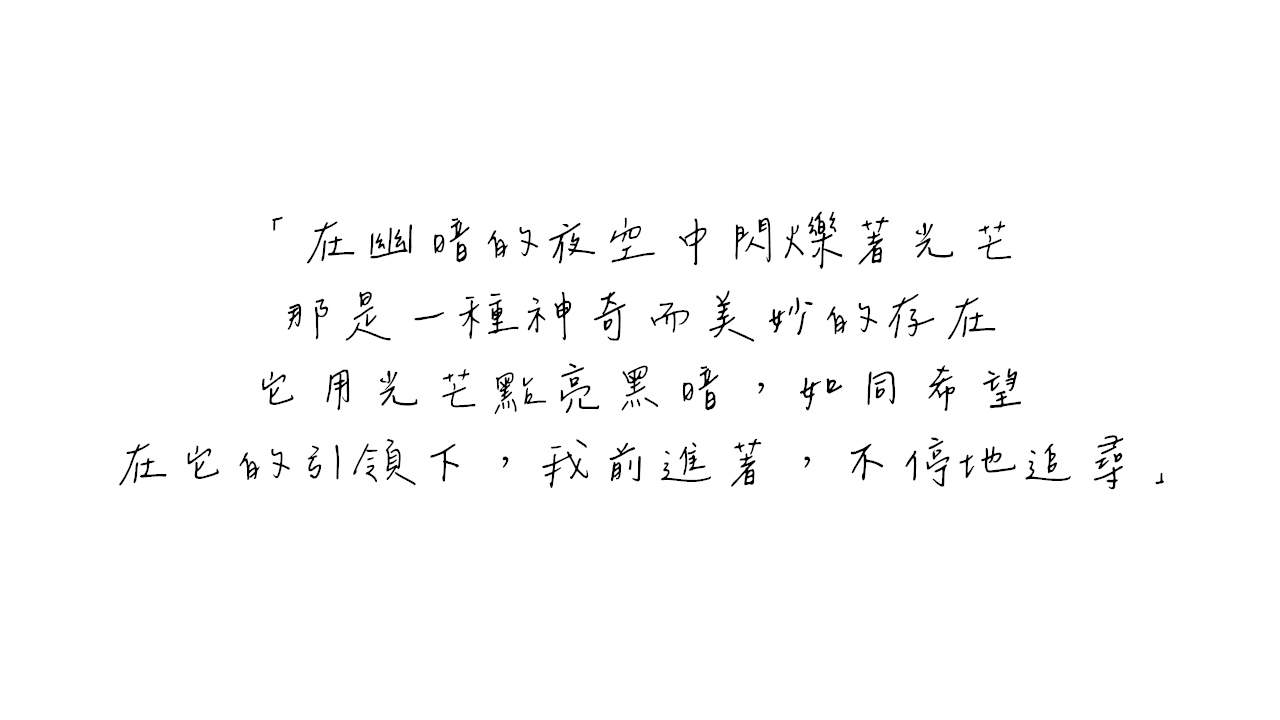 「在幽暗的夜空中閃爍著光芒
那是一種神奇而美妙的存在
它用光芒點亮黑暗，如同希望
在它的引領下，我前進著，不停地追尋」